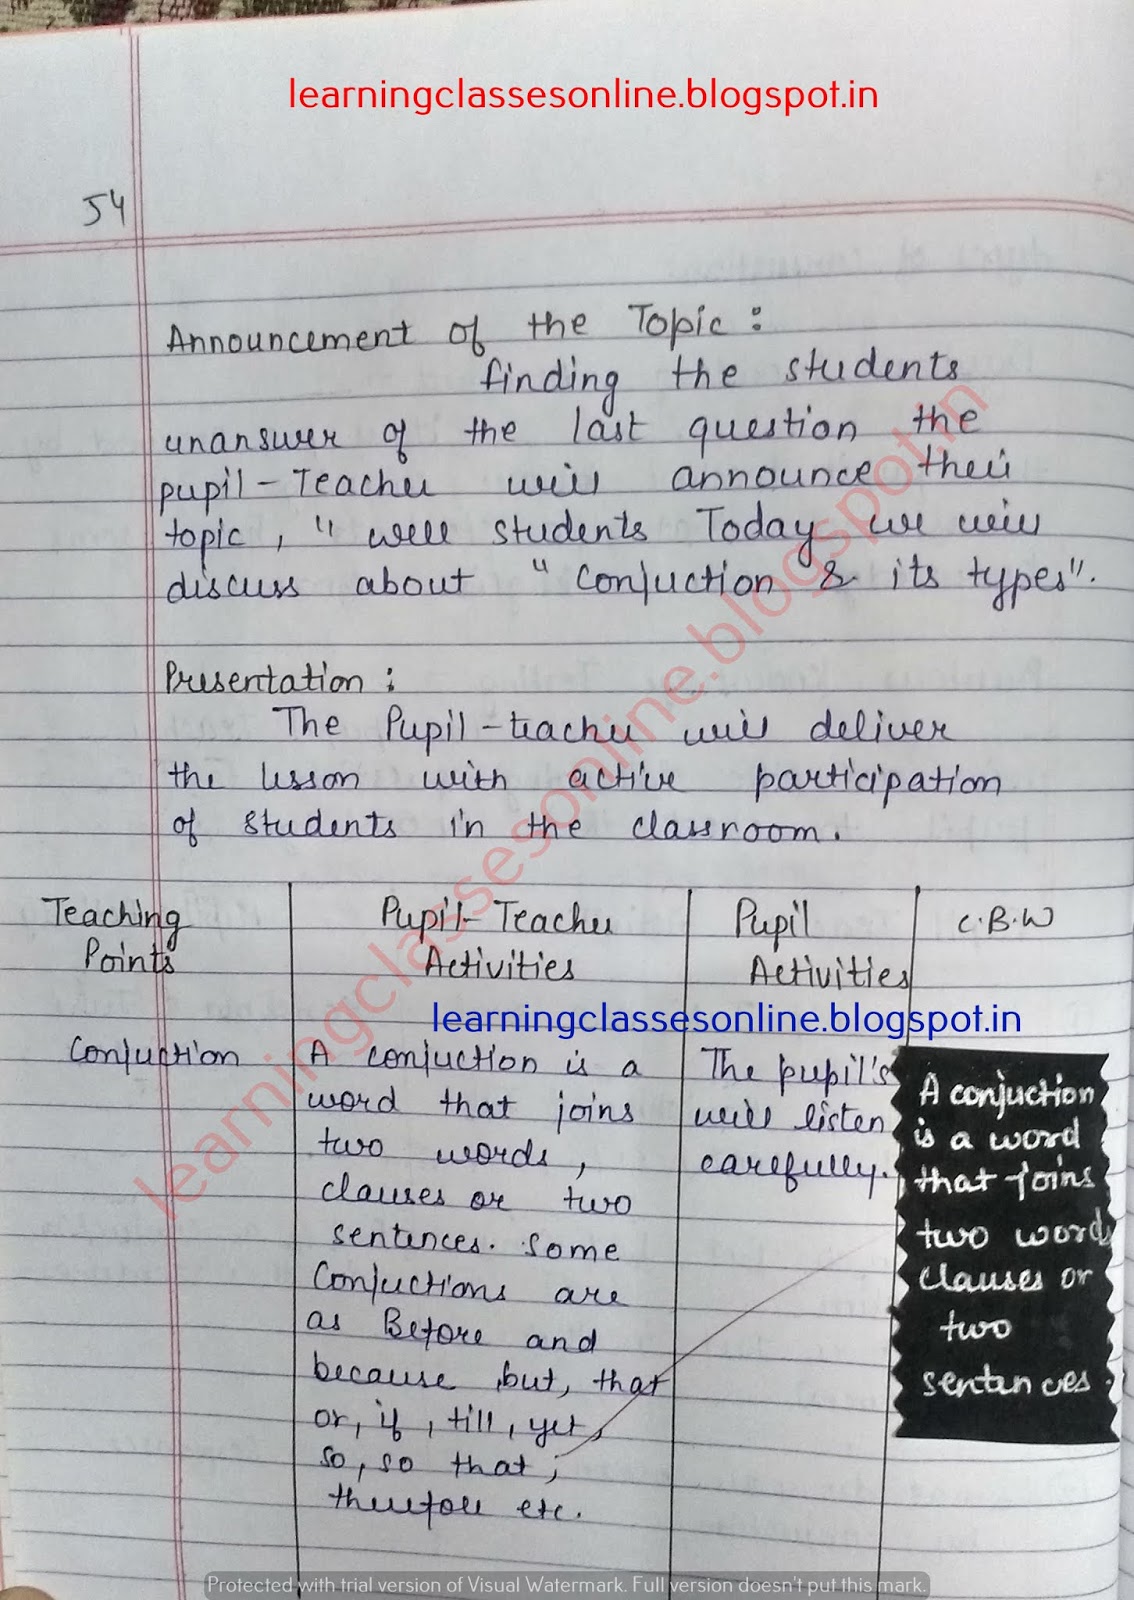 learningclassesonline.blogspot.in
54
Announcement of the Topic :
finding the students
unanswer of the last question the
pupil-Teacher will announce their
topic, " well students Today we will
discuss about " conjuction & its types".
Presentation :
The Pupil-teacher will deliver
the lesson with active participation
of students in the classroom.
Teaching
Points
Pupil-Teacher
Activities
Pupil
Activities
C.B.W
learningclassesonline.blogspot.in
Conjuction
A conjuction is a
word that joins
two words,
clauses or two
sentences. Some
Conjuctions are
as Before and
because, but, that
or, if, till, yet,
so, so that,
therefore etc.
The pupil's
will listen
carefully.
A conjuction
is a word
that joins
two words
clauses or
two
sentences.
learningclassesonline.blogspot.in
Protected with trial version of Visual Watermark. Full version doesn't put this mark.